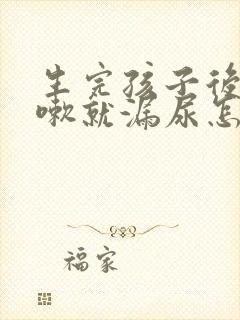 生完孩子後
嗽就漏尿怎
福家